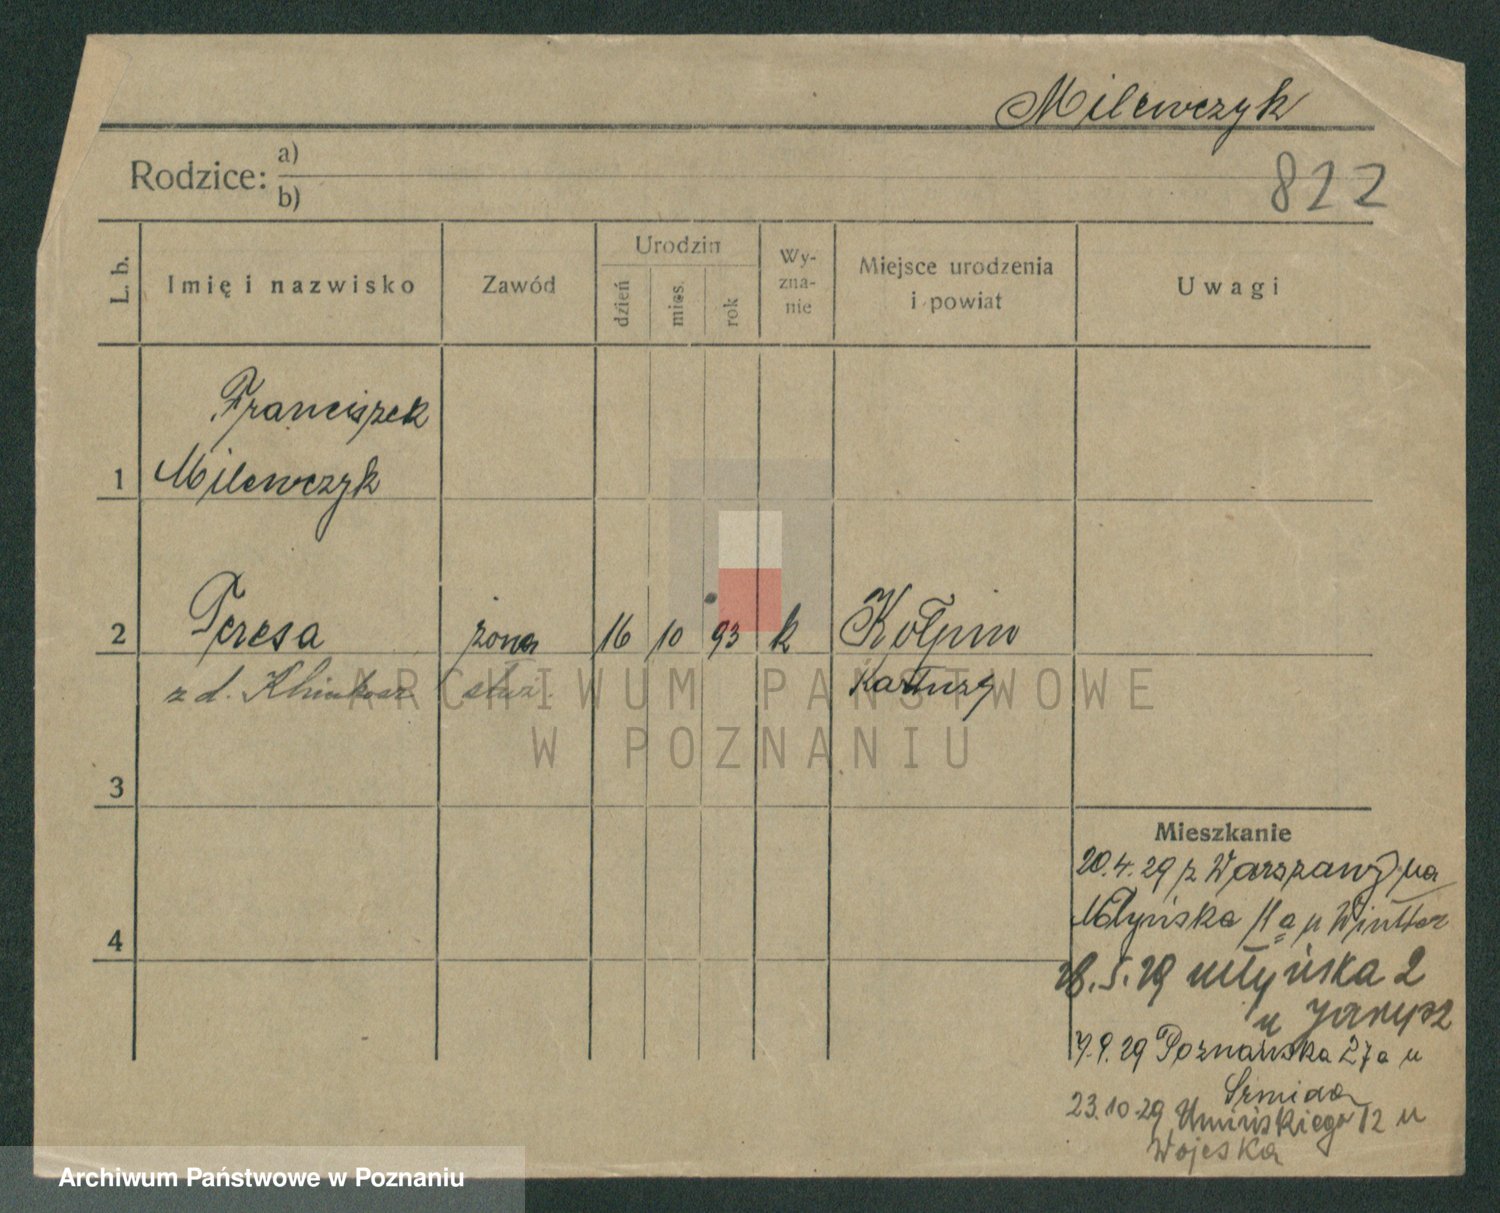 Milewczyk
822
Rodzice: a)
b)
L. b.
Imię i nazwisko
Zawód
Urodzin
dzień
mies.
rok
Wy-
zna-
nie
Miejsce urodzenia
i powiat
Uwagi
1
Franciszek
Milewczyk
2
Teresa
żona
16
10
93
k
Kołpin
z d.
służ.
Kartuzy
ARCHIWUM PAŃSTWOWE
W POZNANIU
3
4
Mieszkanie
20.4.29 z Warszawy na
Młyńska 11a u Winter
28.5.29 Młyńska 2
u Jarysz
7.9.29 Poznańska 27a u
Śrmida
23.10.29 Umińskiego 12 u
Wojeska
Archiwum Państwowe w Poznaniu